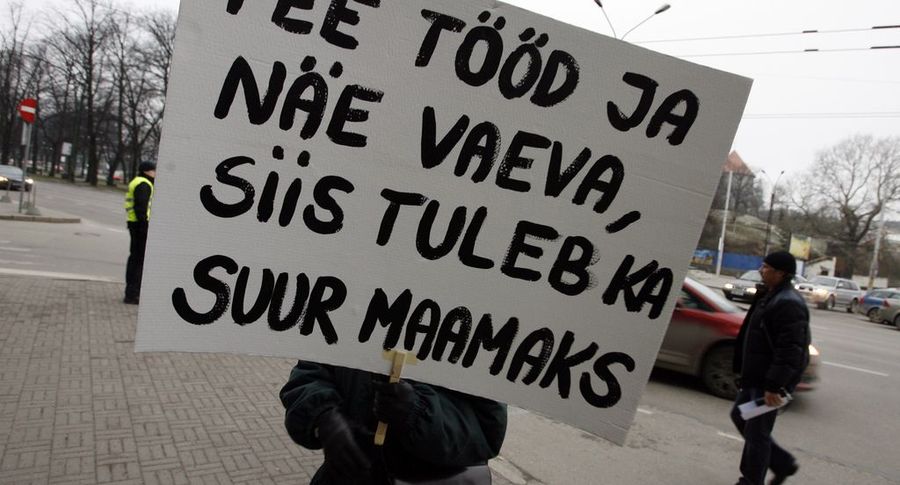 TEE TÖÖD JA
NÄE VAEVA,
SIIS TULEB KA
SUUR MAAMAKS